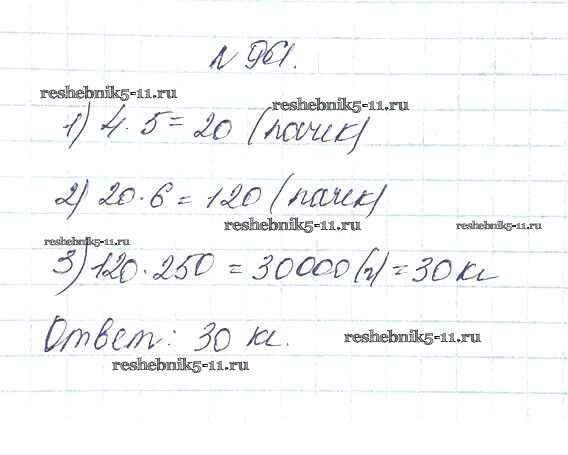 N 961.
reshebnik5-11.ru
reshebnik5-11.ru
1) 4 · 5 = 20 (пачек)
2) 20 · 6 = 120 (пачек)
reshebnik5-11.ru
reshebnik5-11.ru
reshebnik5-11.ru
3) 120 · 250 = 30000 (г) = 30 кг
Ответ: 30 кг.
reshebnik5-11.ru
reshebnik5-11.ru